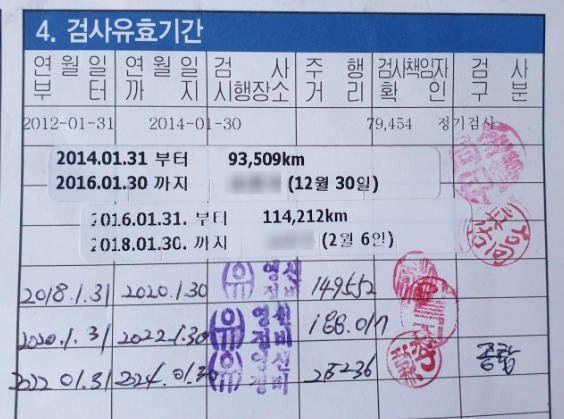 4. 검사유효기간
연월일부터 연월일까지 검사시행장소 주행거리 검사책임자확인 검사구분
2012-01-31 2014-01-30 79,454 정기검사
2014.01.31 부터 93,509km
2016.01.30 까지 (12월 30일)
2016.01.31. 부터 114,212km
2018.01.30. 까지 (2월 6일)
2018.1.31 2020.1.30 영신정비 149552
2020.1.31 2022.1.30 영신정비 188.017
2022 01.31 2024.01.30 영신정비 종합